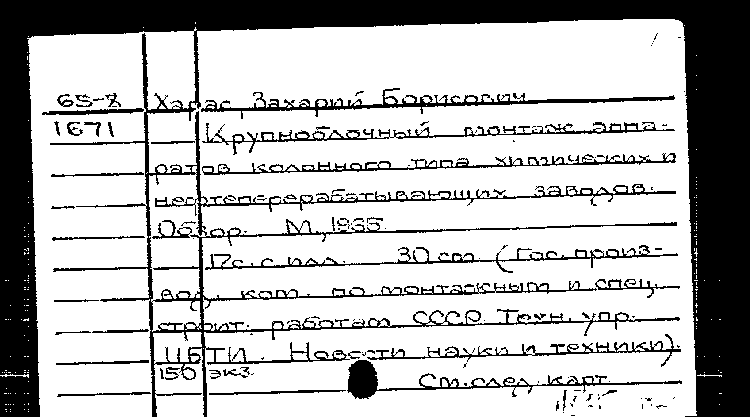 65-8 Харас, Захарий Борисович
1671 Крупноблочный монтаж аппа-
ратов колонного типа химических и
нефтеперерабатывающих заводов.
Обзор. М., 1965
с. с илл. 30 см (Гос. произ-
вод. ком. по монтажным и спец.
строит. работам СССР. Техн. упр.
ЦБТИ. Новости науки и техники).
150 экз.
См. след. карт.